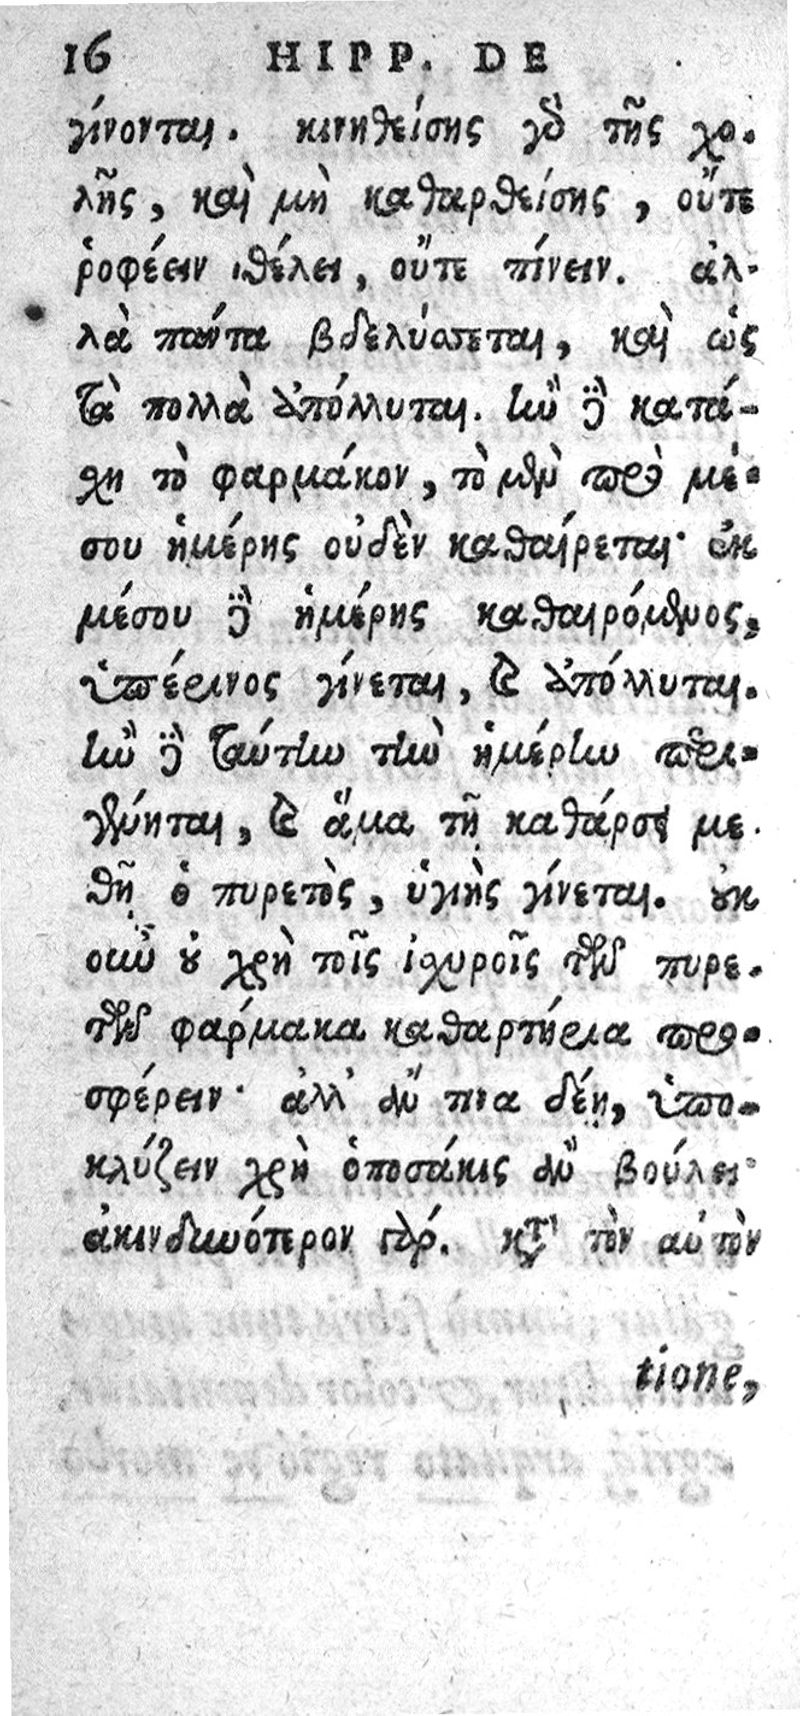 16 HIPP. DE
γίνονται. κινηθείσης γὸ τῆς χο-
λῆς, καὶ μὴ καθαρθείσης, οὔτε
ῥοφέειν θέλει, οὔτε πίνειν. ἀλ-
λὰ πάντα βδελύσσεται, καὶ ὡς
τὰ πολλὰ ἀπόλλυται. ἢν δὲ κατά-
χη τὸ φαρμάκον, τὸ μὲν πρὸ μέ-
σου ἡμέρης οὐδὲν καθαίρεται· ἐκ
μέσου δὲ ἡμέρης καθαιρόμενος,
ὑπέρινος γίνεται, ϗ ἀπόλλυται.
ἢν δὲ ταύτην τὴν ἡμέρην περι-
γένηται, ϗ ἅμα τῇ καθάρσει με-
θῇ ὁ πυρετὸς, ὑγιὴς γίνεται. οὐκ
οὖν οὐ χρὴ τοῖς ἰχυροῖς τῶν πυρε-
τῶν φάρμακα καθαρτήρια προσ-
σφέρειν· ἀλλ' ἄν τινα δέῃ, ὑπο-
κλύζειν χρὴ ὁποσάκις ἂν βούλει·
ἀκινδυνότερον γάρ. κτ' τὸν αὐτὸν
tione,